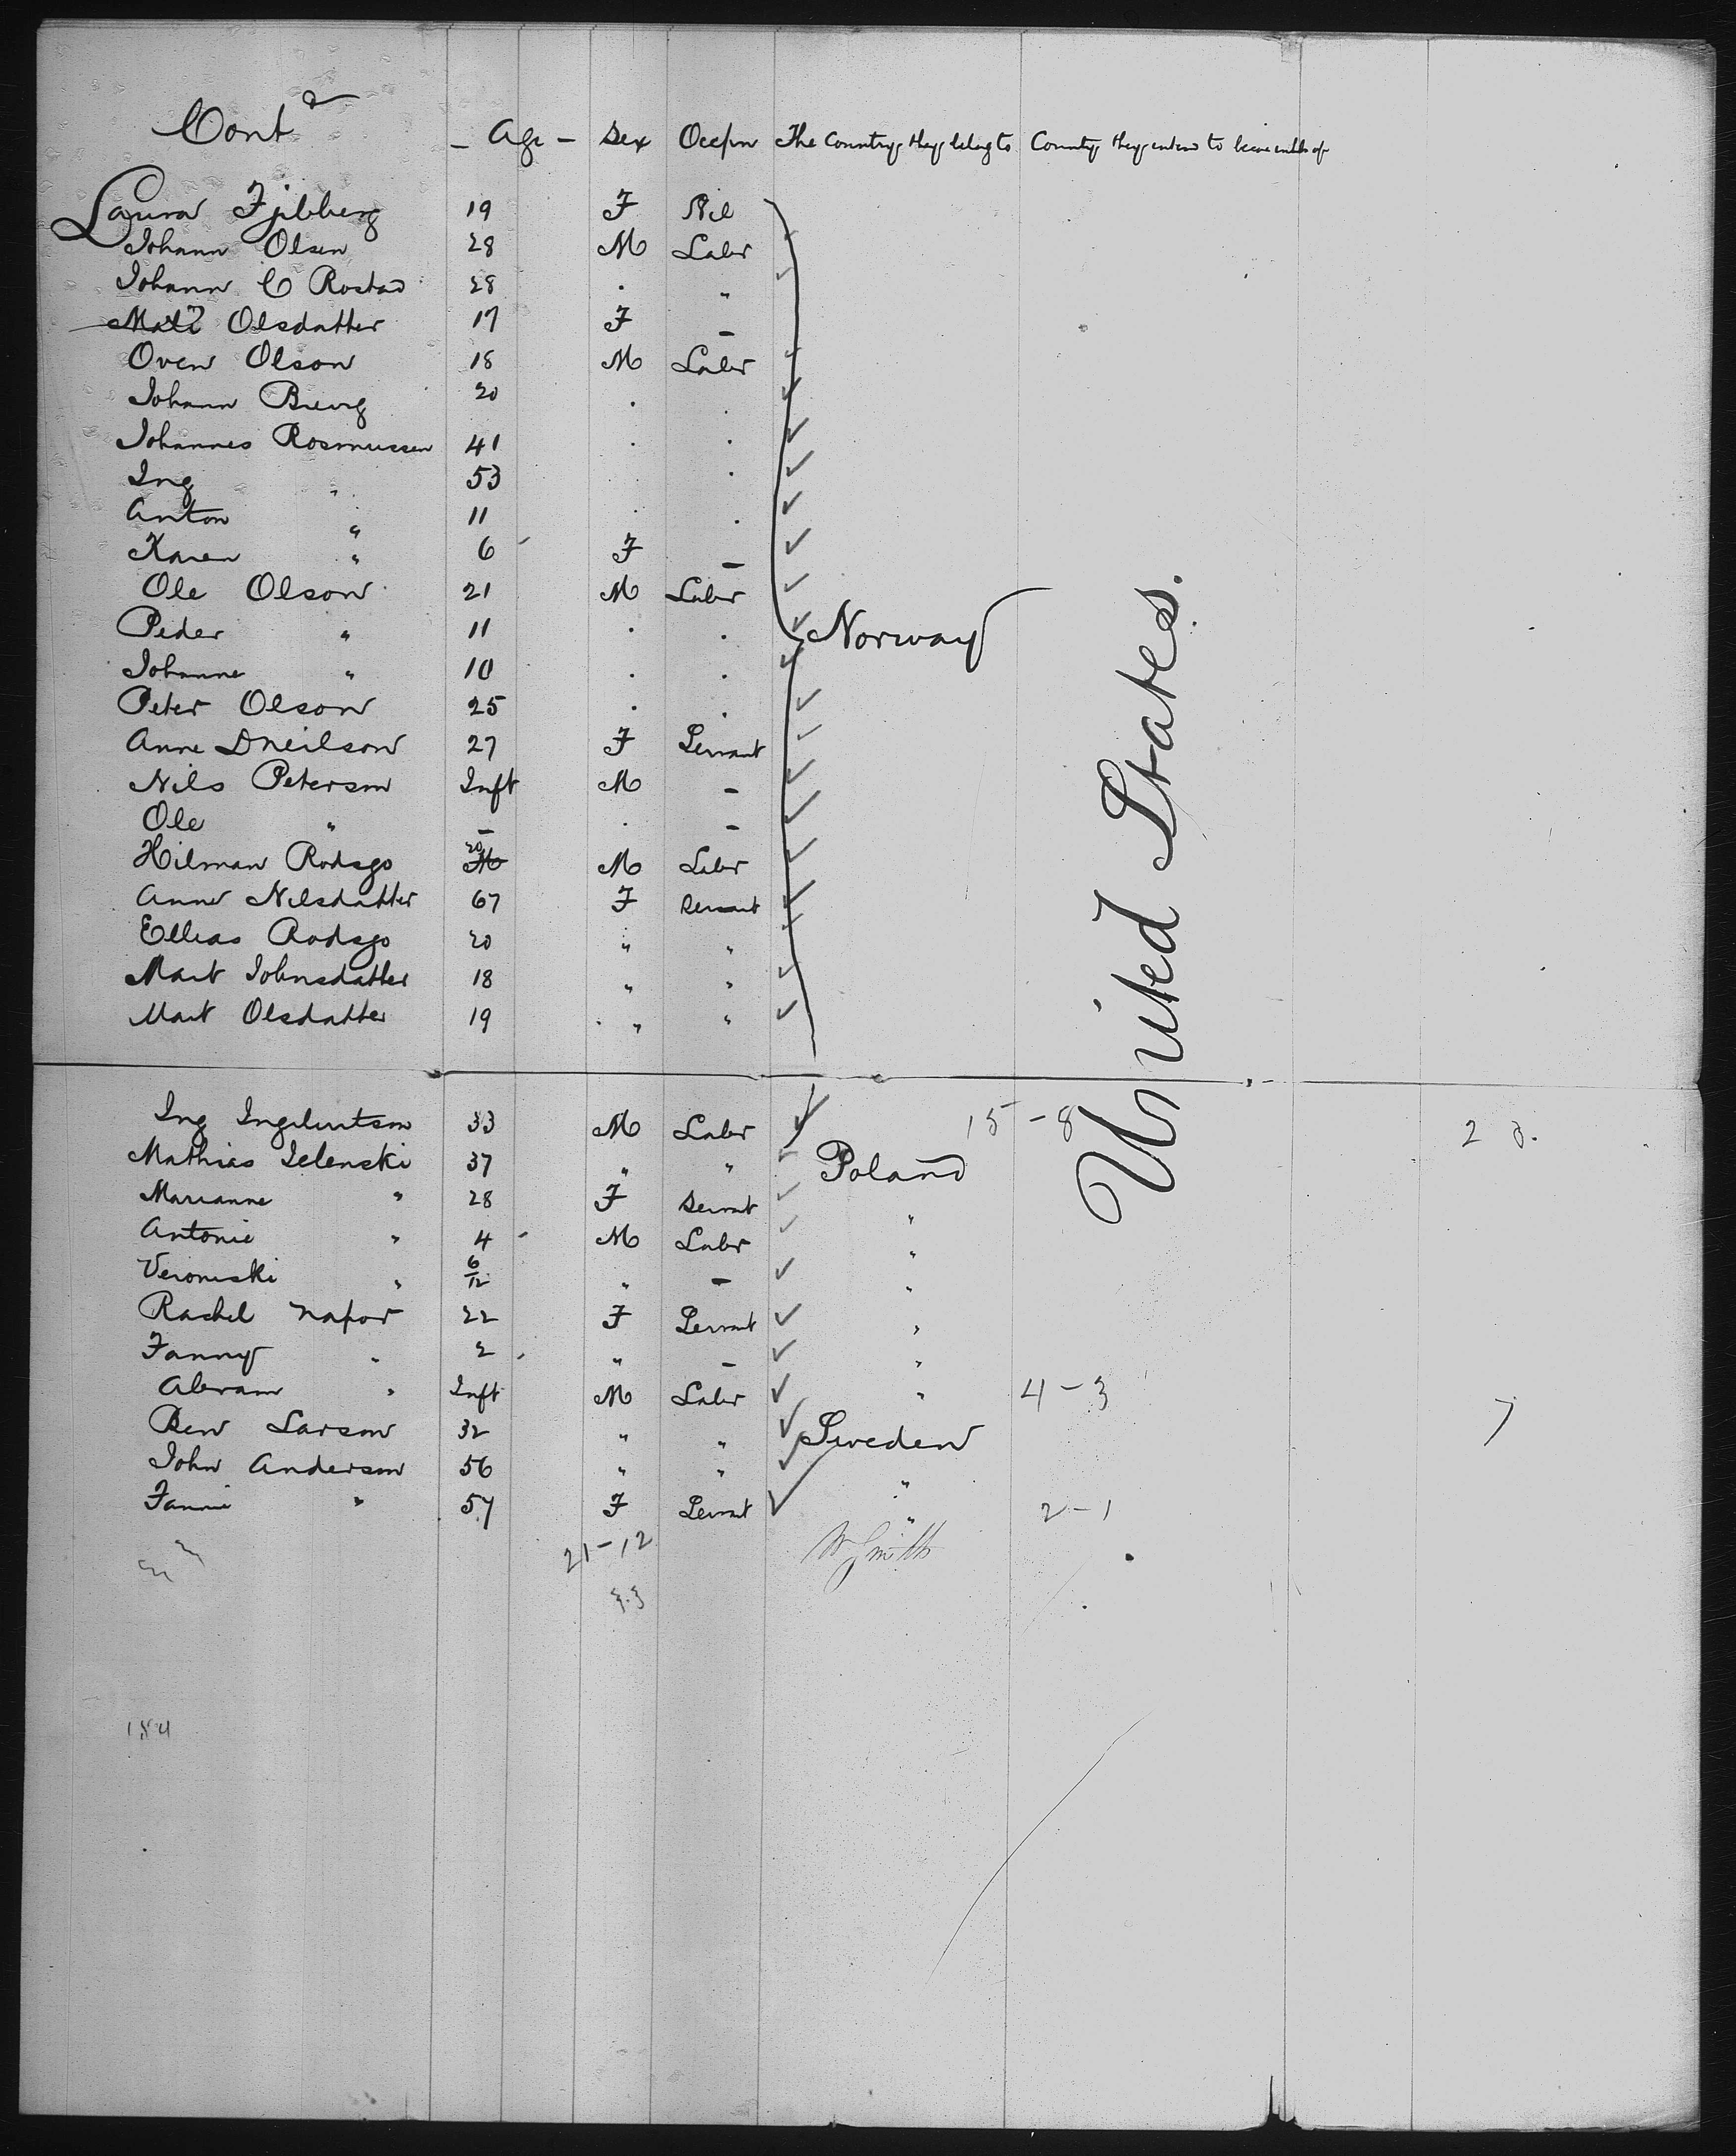 Contd - Age - Sex Occpn The Country they belong to Country they intend to become inhbts of
Laura Fjibberg 19 F Nil
Johann Olsen 28 M Labr
Johann C Rostad 28 . "
Mali Olsdatter 17 F -
Oven Olson 18 M Labr
Johann Buvrg 20 . .
Johannes Rosmussen 41 . .
Ing " 53 . .
Anton " 11 . .
Karen " 6 F -
Ole Olson 21 M Labr
Peder " 11 . . Norway
Johanne " 10 . .
Peter Olson 25 . .
Anne Dneilson 27 F Servant
Nils Peterson Inft M -
Ole " - . -
Hilman Rodsgo 20 M Labr
Anne Nilsdatter 67 F Servant
Ellias Rodsgo 20 " "
Marit Johnsdatter 18 " "
Marit Olsdatter 19 " "
United States.
Ing Ingiluitson 33 M Labr 15-8 23.
Mathias Zelenski 37 " " Poland
Marianne " 28 F Servnt "
Antonie " 4 M Labr "
Veroniski " 6/12 " - "
Rachel Napor 22 F Servnt "
Fanny " 2 " - "
Abram " Inft M Labr " 4-3 7
Ben Larson 32 " " Sweden
John Anderson 56 " " "
Fannie " 57 F Servnt " 2-1
21-12 W Smith
33
184